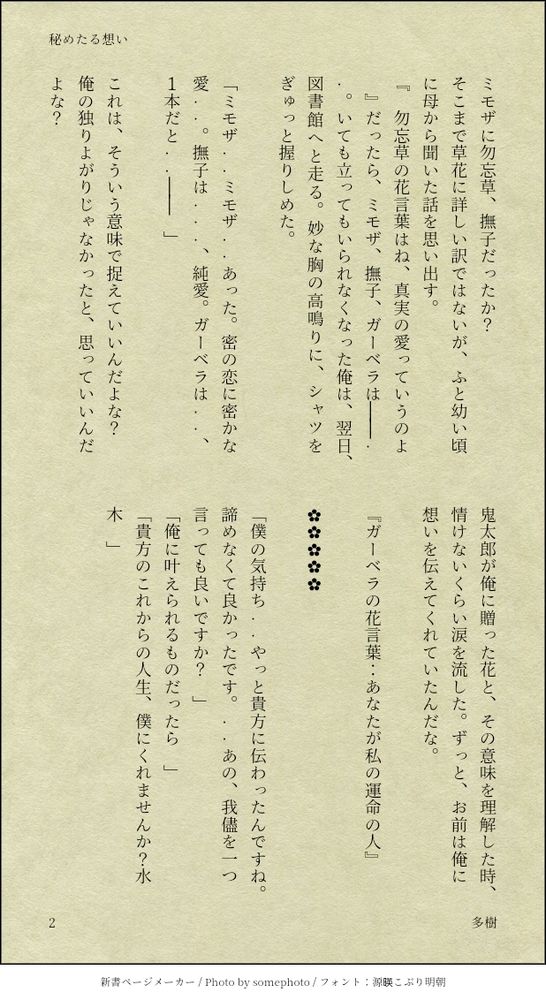 秘めたる想い
ミモザに勿忘草、撫子だったか?
そこまで草花に詳しい訳ではないが、ふと幼い頃
に母から聞いた話を思い出す。
『 勿忘草の花言葉はね、真実の愛っていうのよ
』だったら、ミモザ、撫子、ガーベラは━━.
.。いても立ってもいられなくなった俺は、翌日、
図書館へと走る。妙な胸の高鳴りに、シャツを
ぎゅっと握りしめた。
「ミモザ..ミモザ..あった。密の恋に密かな
愛..。撫子は...、純愛。ガーベラは..、
1本だと..━━ 」
これは、そういう意味で捉えていいんだよな?
俺の独りよがりじゃなかったと、思っていいんだ
よな?
鬼太郎が俺に贈った花と、その意味を理解した時、
情けないくらい涙を流した。ずっと、お前は俺に
想いを伝えてくれていたんだな。
『ガーベラの花言葉:あなたが私の運命の人』
✿✿✿✿✿
「僕の気持ち..やっと貴方に伝わったんですね。
諦めなくて良かったです。..あの、我儘を一つ
言っても良いですか? 」
「俺に叶えられるものだったら 」
「貴方のこれからの人生、僕にくれませんか?水
木 」
2
多樹
新書ページメーカー / Photo by somephoto / フォント:源暎こぶり明朝